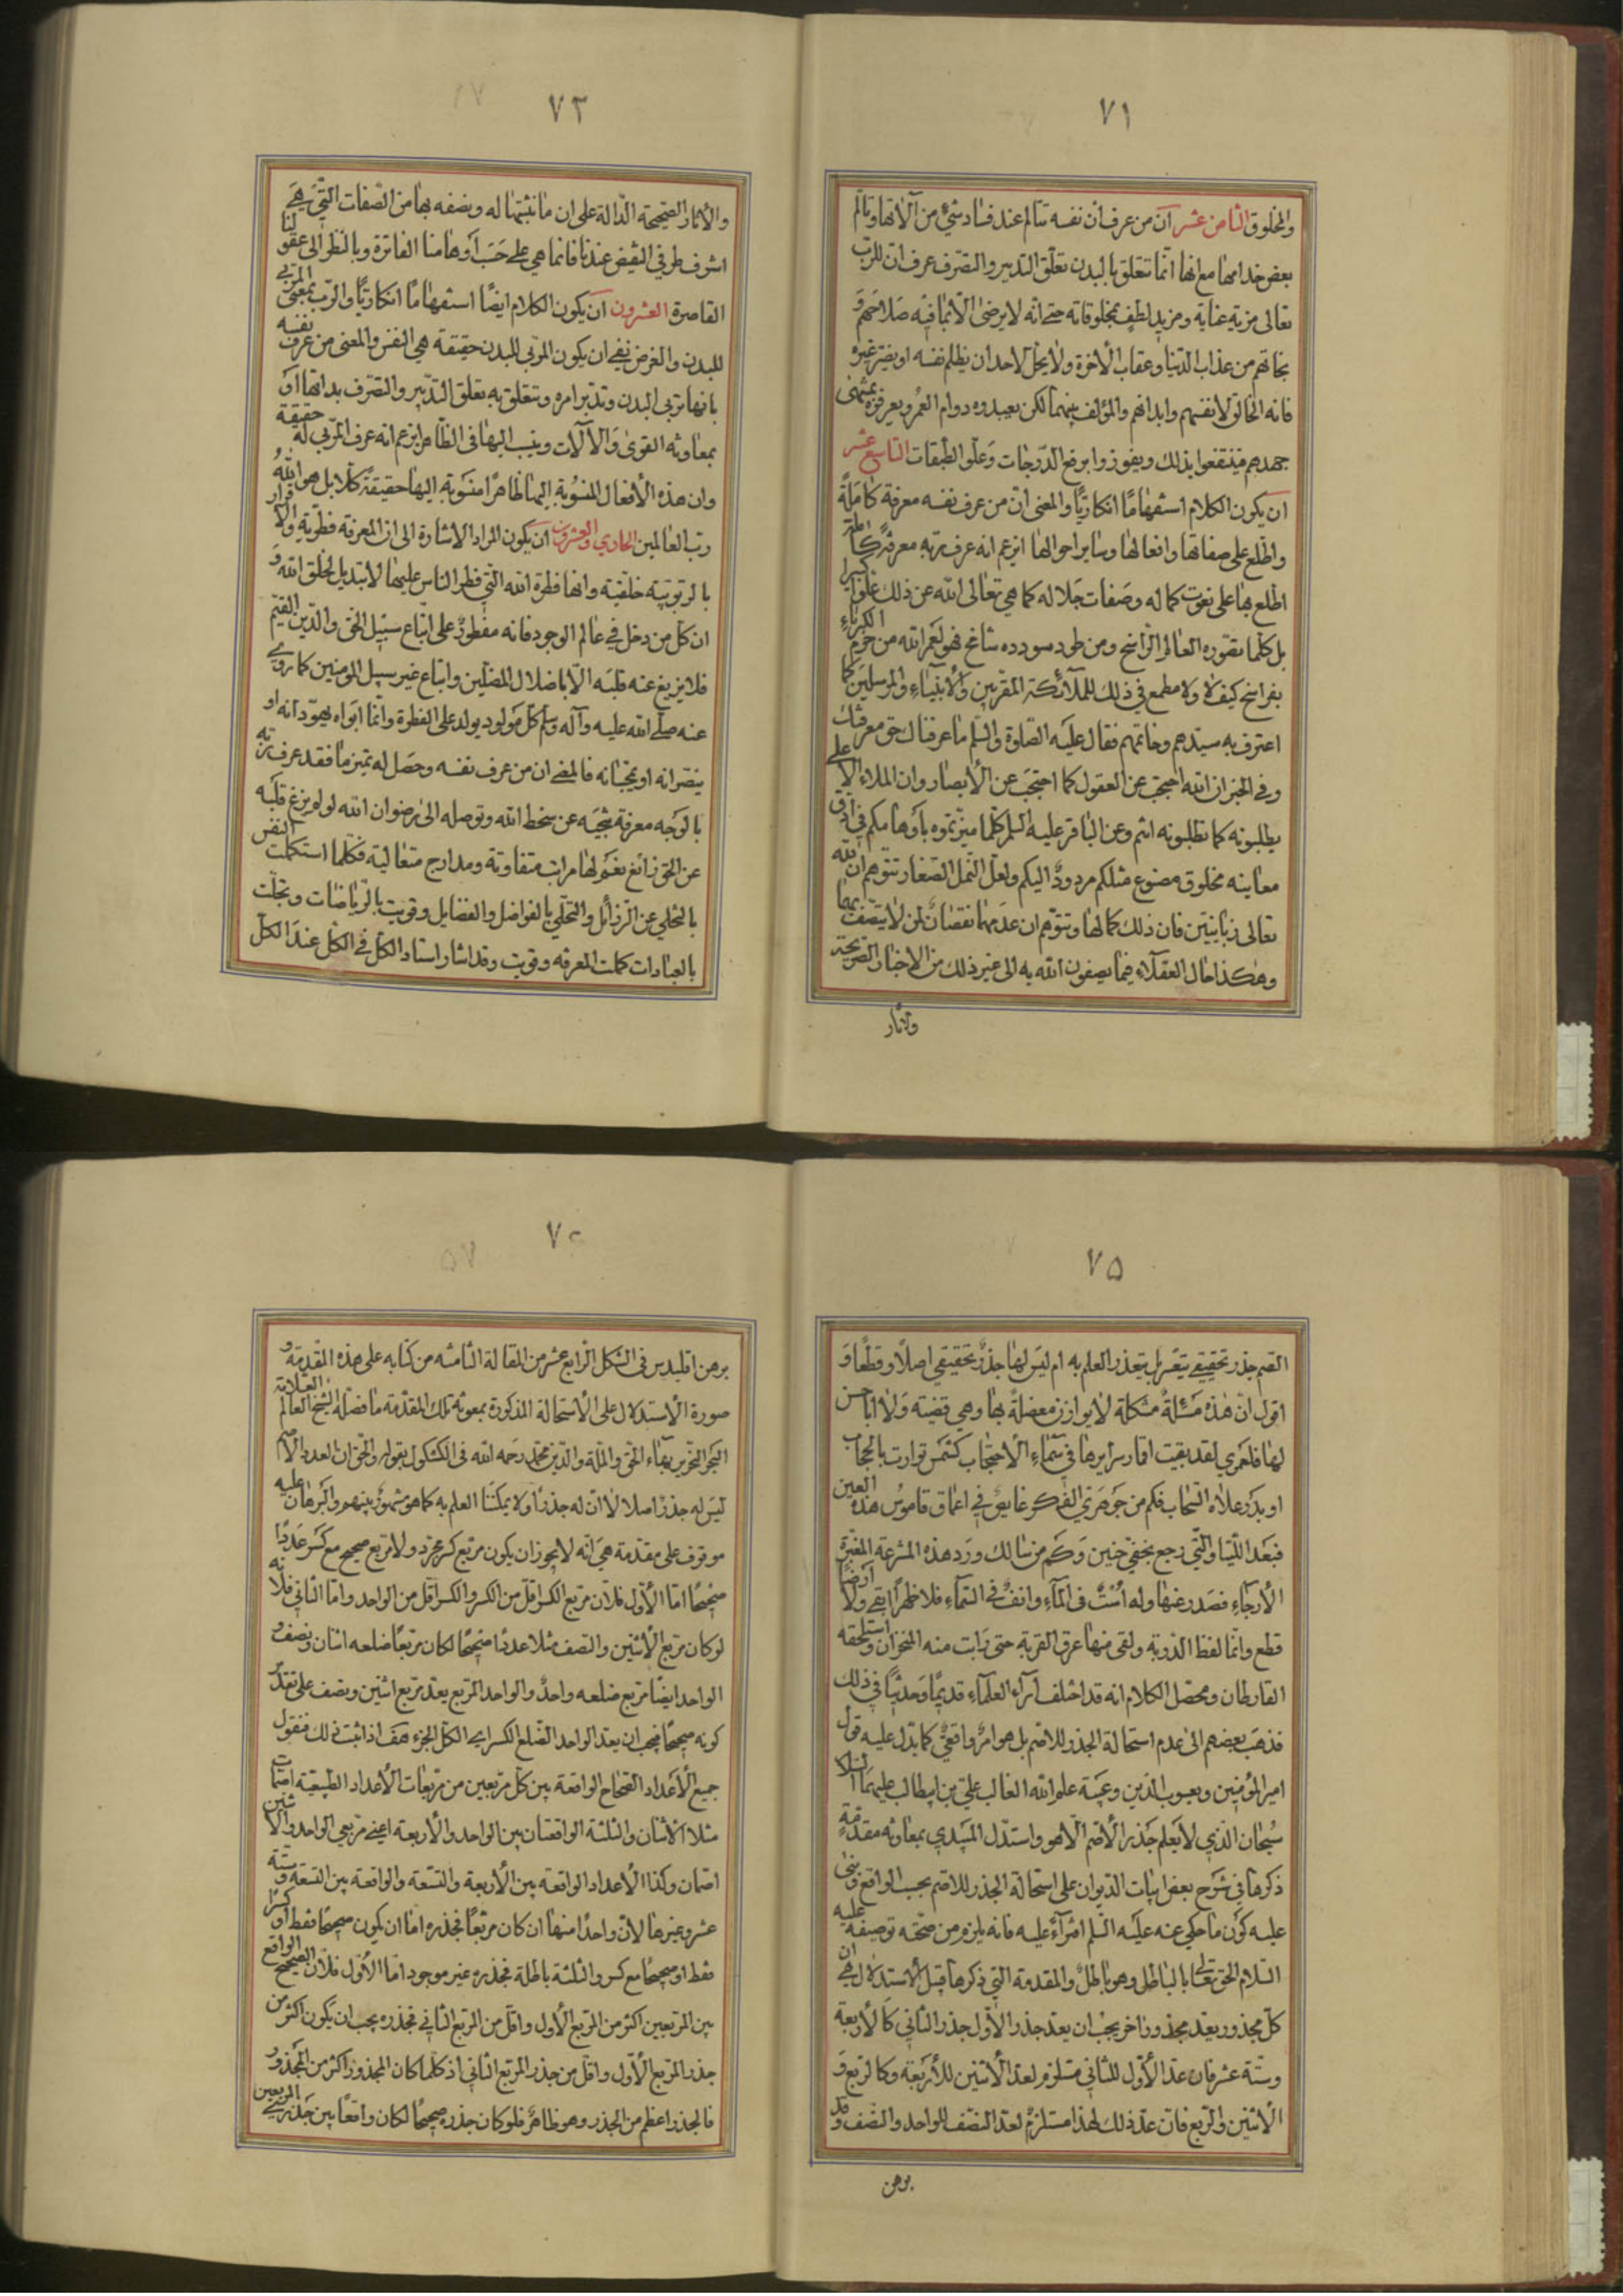 ٧١
والمخلوق الثامن عشر ان من عرف أن نفسه تتالم عند فساد شيء من آلاتها وتالم
بعض خدامها مع انها انما تتعلق بالبدن تعلق التدبير والتصرف عرف ان للرب
تعالى مزية عناية ومزيد لطف بمخلوقاته حتى انه لا يرضى الا بما فيه صلاحهم و
نجاتهم من عذاب الدنيا وعقاب الآخرة ولا يحل لاحد ان يظلم نفسه او يضر غيره
فانه الخالق لانفسهم وابدانهم والمؤلف بينهما لكن يعبدوه دوام العمر ويعرفوه بمنتهى
جهدهم فينتفعوا بذلك ويفوزوا برفع الدرجات وعلو الطبقات التاسع عشر
ان يكون الكلام استفهاما انكاريا والمعنى ان من عرف نفسه معرفة كاملة
واطلع على صفاتها وافعالها وساير احوالها ايزعم انه عرف ربه معرفة كاملة
اطلع بها على نعوت كماله وصفات جلاله كما هي تعالى الله عن ذلك علوا كبيرا
بل كلما تصوره العالم الراسخ ومن طود سودده شامخ فهو لعمر الله من حرم الكبرياء
بفراسخ كيف لا ولا مطمع في ذلك للملائكة المقربين والأنبياء والمرسلين كما
اعترف به سيدهم وخاتمهم فقال عليه الصلوة والسلم ما عرفناك حق معرفتك
وفي الخبر ان الله احتجب عن العقول كما احتجب عن الأبصار وان الملاء الاعلى
يطلبونه كما تطلبونه انتم وعن الباقر عليه السلم كلما ميزتموه باوهامكم في ادق
معانيه مخلوق مصنوع مثلكم مردود اليكم ولعل النمل الصغار تتوهم ان لله
تعالى زبانيتين فان ذلك كمالها وتتوهم ان عدمها نقصان لمن لا يتصف بهما
وهكذا حال العقلاء فيما يصفون الله به الى غير ذلك من الاخبار الصريحة
والاثار
٧٢
والأثار الصحيحة الدالة على ان ما نثبتها له ونصفه بها من الصفات التي هي
اشرف طرفي النقيض عندنا فانما هي على حسب أوهامنا الفاترة وبالنظر الى عقولنا
القاصرة العشرون ان يكون الكلام ايضا استفهاما انكاريا والرب بمعنى المربي
للبدن والغرض نفي ان يكون المربي للبدن حقيقة هي النفس والمعنى من عرف نفسه
بانها تربي البدن وتدبر امره وتتعلق به تعلق التدبير والتصرف بذاتها او
بمعاونة القوى والآلات وينسب اليها في الظاهر ايزعم انه عرف المربي له حقيقة
وان هذه الأفعال المنسوبة اليها ظاهرا منسوبة اليها حقيقة كلا بل هو الله
رب العالمين الحادي والعشرون ان يكون المراد الاشارة الى ان المعرفة فطرية والاقرار
بالربوبية خلقية وانها فطرة الله التي فطر الناس عليها لا تبديل لخلق الله و
ان كل من دخل في عالم الوجود فانه مفطور على اتباع سبيل الحق والدين القيم
فلا يزيغ عنه قلبه الا باضلال المضلين واتباع غير سبيل المومنين كما روي
عنه صلى الله عليه وآله وسلم كل مولود يولد على الفطرة وانما ابواه يهودانه او
ينصرانه او يمجسانه فالمعنى ان من عرف نفسه وحصل له تميز ما فقد عرف ربه
بالوجه معرفة تنجيه عن سخط الله وتوصله الى رضوان الله لو لم يزغ قلبه
عن الحق زائغ نعم لها مراتب متفاوتة ومدارج متعالية فكلما استكملت النفس
بالتخلي عن الرذائل والتحلي بالفواضل والفضايل وقويت بالرياضات وتجلت
بالعبادات كملت المعرفه وقويت وقد اشار استاد الكل في الكل عند الكل
٧٥
القيم جذر تحقيقي يتعسر بل يتعذر العلم به ام ليس لها جذر تحقيقي اصلا وقطعا و
اقول ان هذه مسئلة مشكلة لا يوازن معضلة بها وهي قضية ولا ابا حسن
لها فلعمري لقد بقيت اقمار سرايرها في سماء الاحتجاب كشمس توارت بالحجاب
او بدر علاه السحاب فكم من جوهري الفكر غايص في اعماق قاموس هذه العين
فبعد اللتيا والتي رجع بخفي حنين وكم من سالك ورد هذه المشرعة المغبرة
الأرجاء فصدر عنها وله أست في الماء وانف في السماء فلا ظهرا ابقى ولا ارضا
قطع وانما لفظ الذوبة ولقى منها عرق القربة حتى ذابت منه المنخران واستلحقه
القارظان ومحصل الكلام انه قد اختلف آراء العلماء قديما وحديثا في ذلك
فذهب بعضهم الى عدم استحالة الجذر للاصم بل هو امر واقعي كما يدل عليه قول
امير المؤمنين ويعسوب الدين وعيبة علم الله الغالب علي بن ابيطالب عليهما السلام
سبحان الذي لا يعلم جذر الأصم الا هو واستدل الميبدي بمعاونة مقدمة
ذكرها في شرح بعض ابيات الديوان على استحالة الجذر للاصم بحسب الواقع وبنى
عليه كون ما حكي عنه عليه السلم افتراء عليه فانه يلزم من صحته توصيفه عليه
السلام الحق تعالى بالباطل وهو باطل والمقدمة التي ذكرها قبل الاستدلال هي ان
كل مجذور يعد مجذورا اخر يجب ان يعد جذر الأول جذر الثاني كالأربعة
وستة عشر فان عد الأول للثاني مستلزم لعد الاثنين للأربعة وكالربع و
الاثنين والربع فان عد ذلك لهذا مستلزم لعد النصف للواحد والنصف وقد
برهن
برهن اقليدس في الشكل الرابع عشر من المقالة الثامنه من كتابه على هذه المقدمة و
صورة الاستدلال على الأستحالة المذكورة بمعونة تلك المقدمة ما فصله الشيخ العالم العلامة
البحر النحرير بهاء الحق والملة والدين محمد رحمه الله في الكشكول بقوله والحق ان العدد الأصم
ليس له جذر اصلا لا ان له جذرا ولا يمكننا العلم به كما هو مشهور بينهم والبرهان عليه
موقوف على مقدمة هي انه لا يجوز ان يكون مربع كسر مجرد ولا مربع صحيح مع كسر عددا
صحيحا اما الأول فلان مربع الكسر اقل من الكسر والكسر اقل من الواحد واما الثاني فلانه
لو كان مربع الأثنين والنصف مثلا عددا صحيحا لكان مربعا ضلعه اثنان ونصف و
الواحد ايضا مربع ضلعه واحد والواحد المربع يعد مربع اثنين ونصف على تقدير
كونه صحيحا فيجب ان يعد الواحد الضلع الكسر اي الكل الجزء هف اذا ثبت ذلك فنقول
جميع الأعداد الصحاح الواقعة بين كل مربعين من مربعات الأعداد الطبيعية اصمات
مثلا الاثنان والثلثة الواقعتان بين الواحد والأربعة اعني مربعي الواحد والاثنين
اصمان وكذا الأعداد الواقعة بين الأربعة والتسعة والواقعة بين التسعة وستة
عشر وغيرها لان واحدا منها ان كان مربعا فجذره اما ان يكون صحيحا فقط او كسرا
فقط او صحيحا مع كسر والثلثة باطلة فجذره غير موجود اما الأول فلان الصحيح الواقع
بين المربعين اكثر من المربع الأول واقل من المربع الثاني فجذره يجب ان يكون اكثر من
جذر المربع الأول واقل من جذر المربع الثاني اذ كلما كان المجذور اكثر من المجذور
فالجذر اعظم من الجذر وهو ظاهر فلو كان جذره صحيحا لكان واقعا بين جذري المربعين